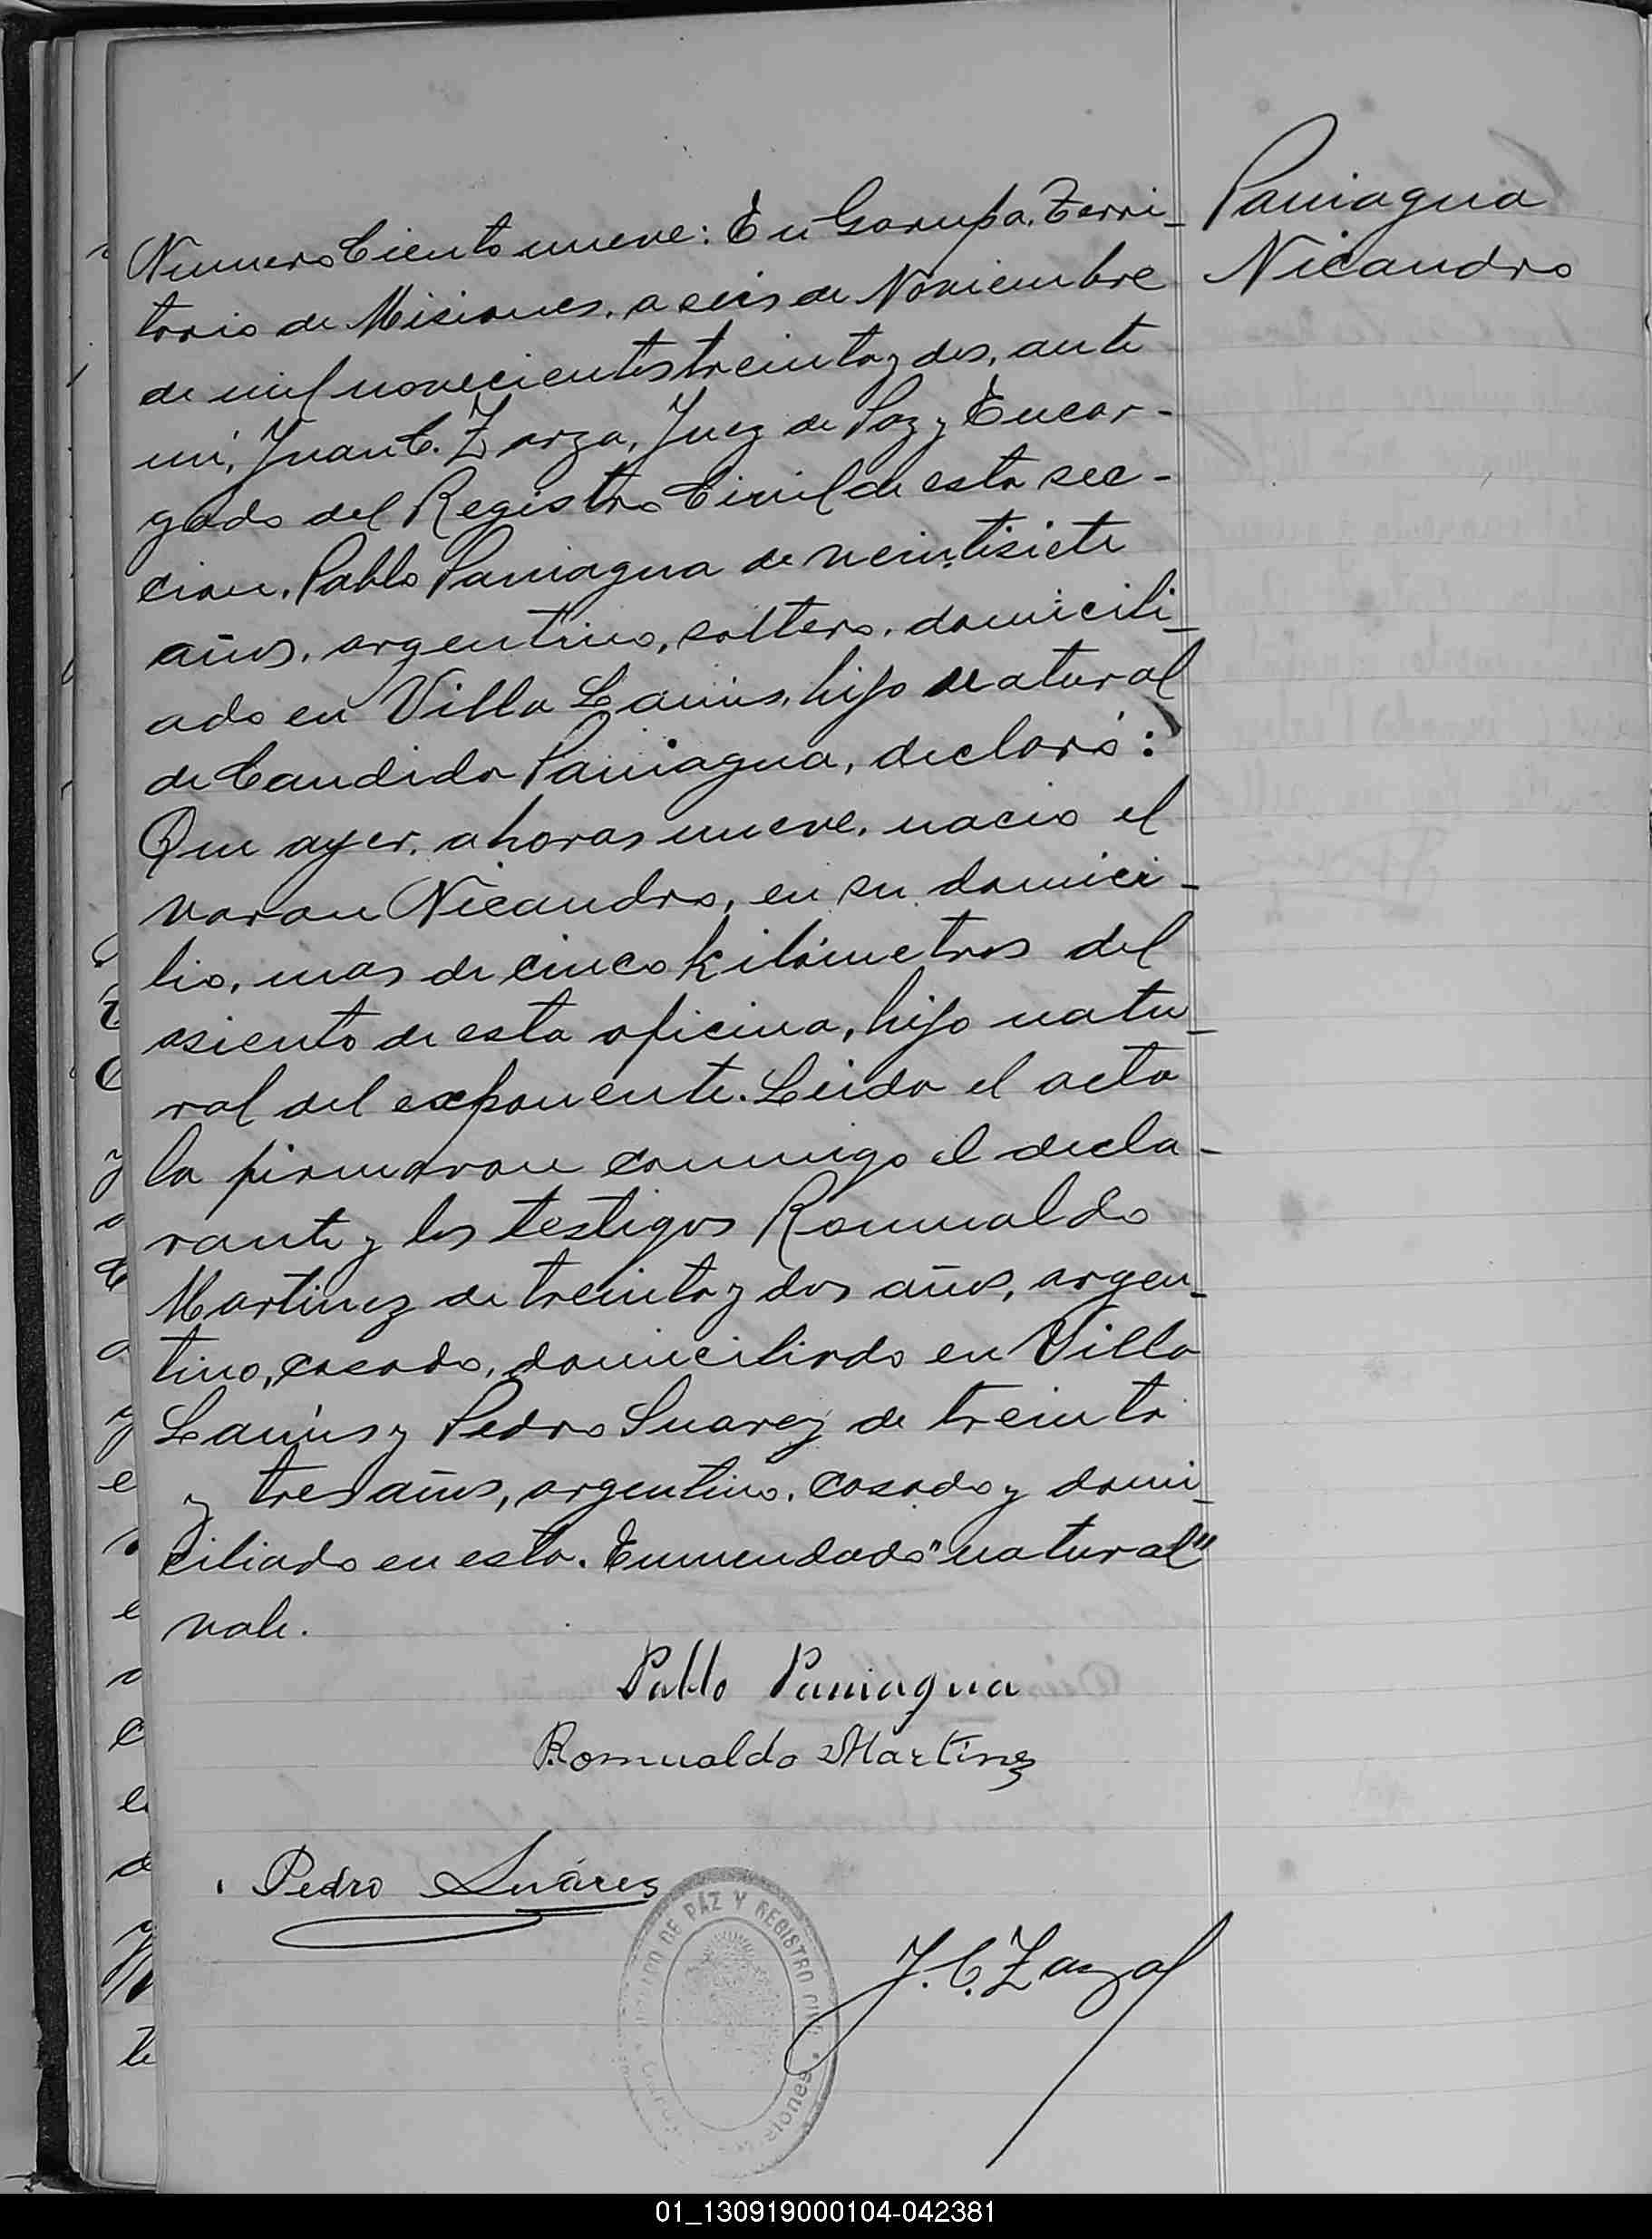 Paniagua
Nicandro
Numero Ciento nueve: En Garupa. Terri-
torio de Misiones, a seis de Noviembre
de mil novecientos treinta y dos, ante
mi, Juan C. Zarza, Juez de Paz y Encar-
gado del Registro Civil de esta sec-
cion. Pablo Paniagua de veintisiete
años, argentino, soltero, domicili-
ado en Villa Lanús, hijo natural
de Candida Paniagua, declaró:
Que ayer, a horas nueve, nacio el
varon Nicandro, en su domici-
lio, mas de cinco kilómetros del
asiento de esta oficina, hijo natu-
ral del exponente. Leida el acta
la firmaron conmigo el decla-
rante y los testigos Romualdo
Martinez de treinta y dos años, argen-
tino, casado, domiciliado en Villa
Lanús y Pedro Suarez de treinta
y tres años, argentino, casado y domi-
ciliado en esta. Enmendado "natural"
vale.
Pablo Paniagua
Romualdo Martinez
Pedro Suárez
DE PAZ Y REGISTRO CIVIL
J. C. Zarza
01_130919000104-042381